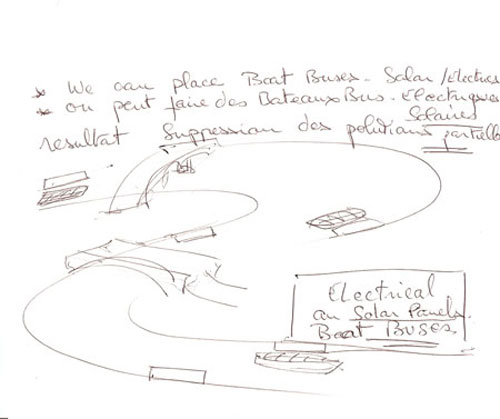 * We can place Boat Buses - Solar / Electrics
* on peut faire des Bateaux Bus - Electriques
Solaires
resultat Suppression des polutions partielle
Electrical
au Solar Panels.
Boat Buses.